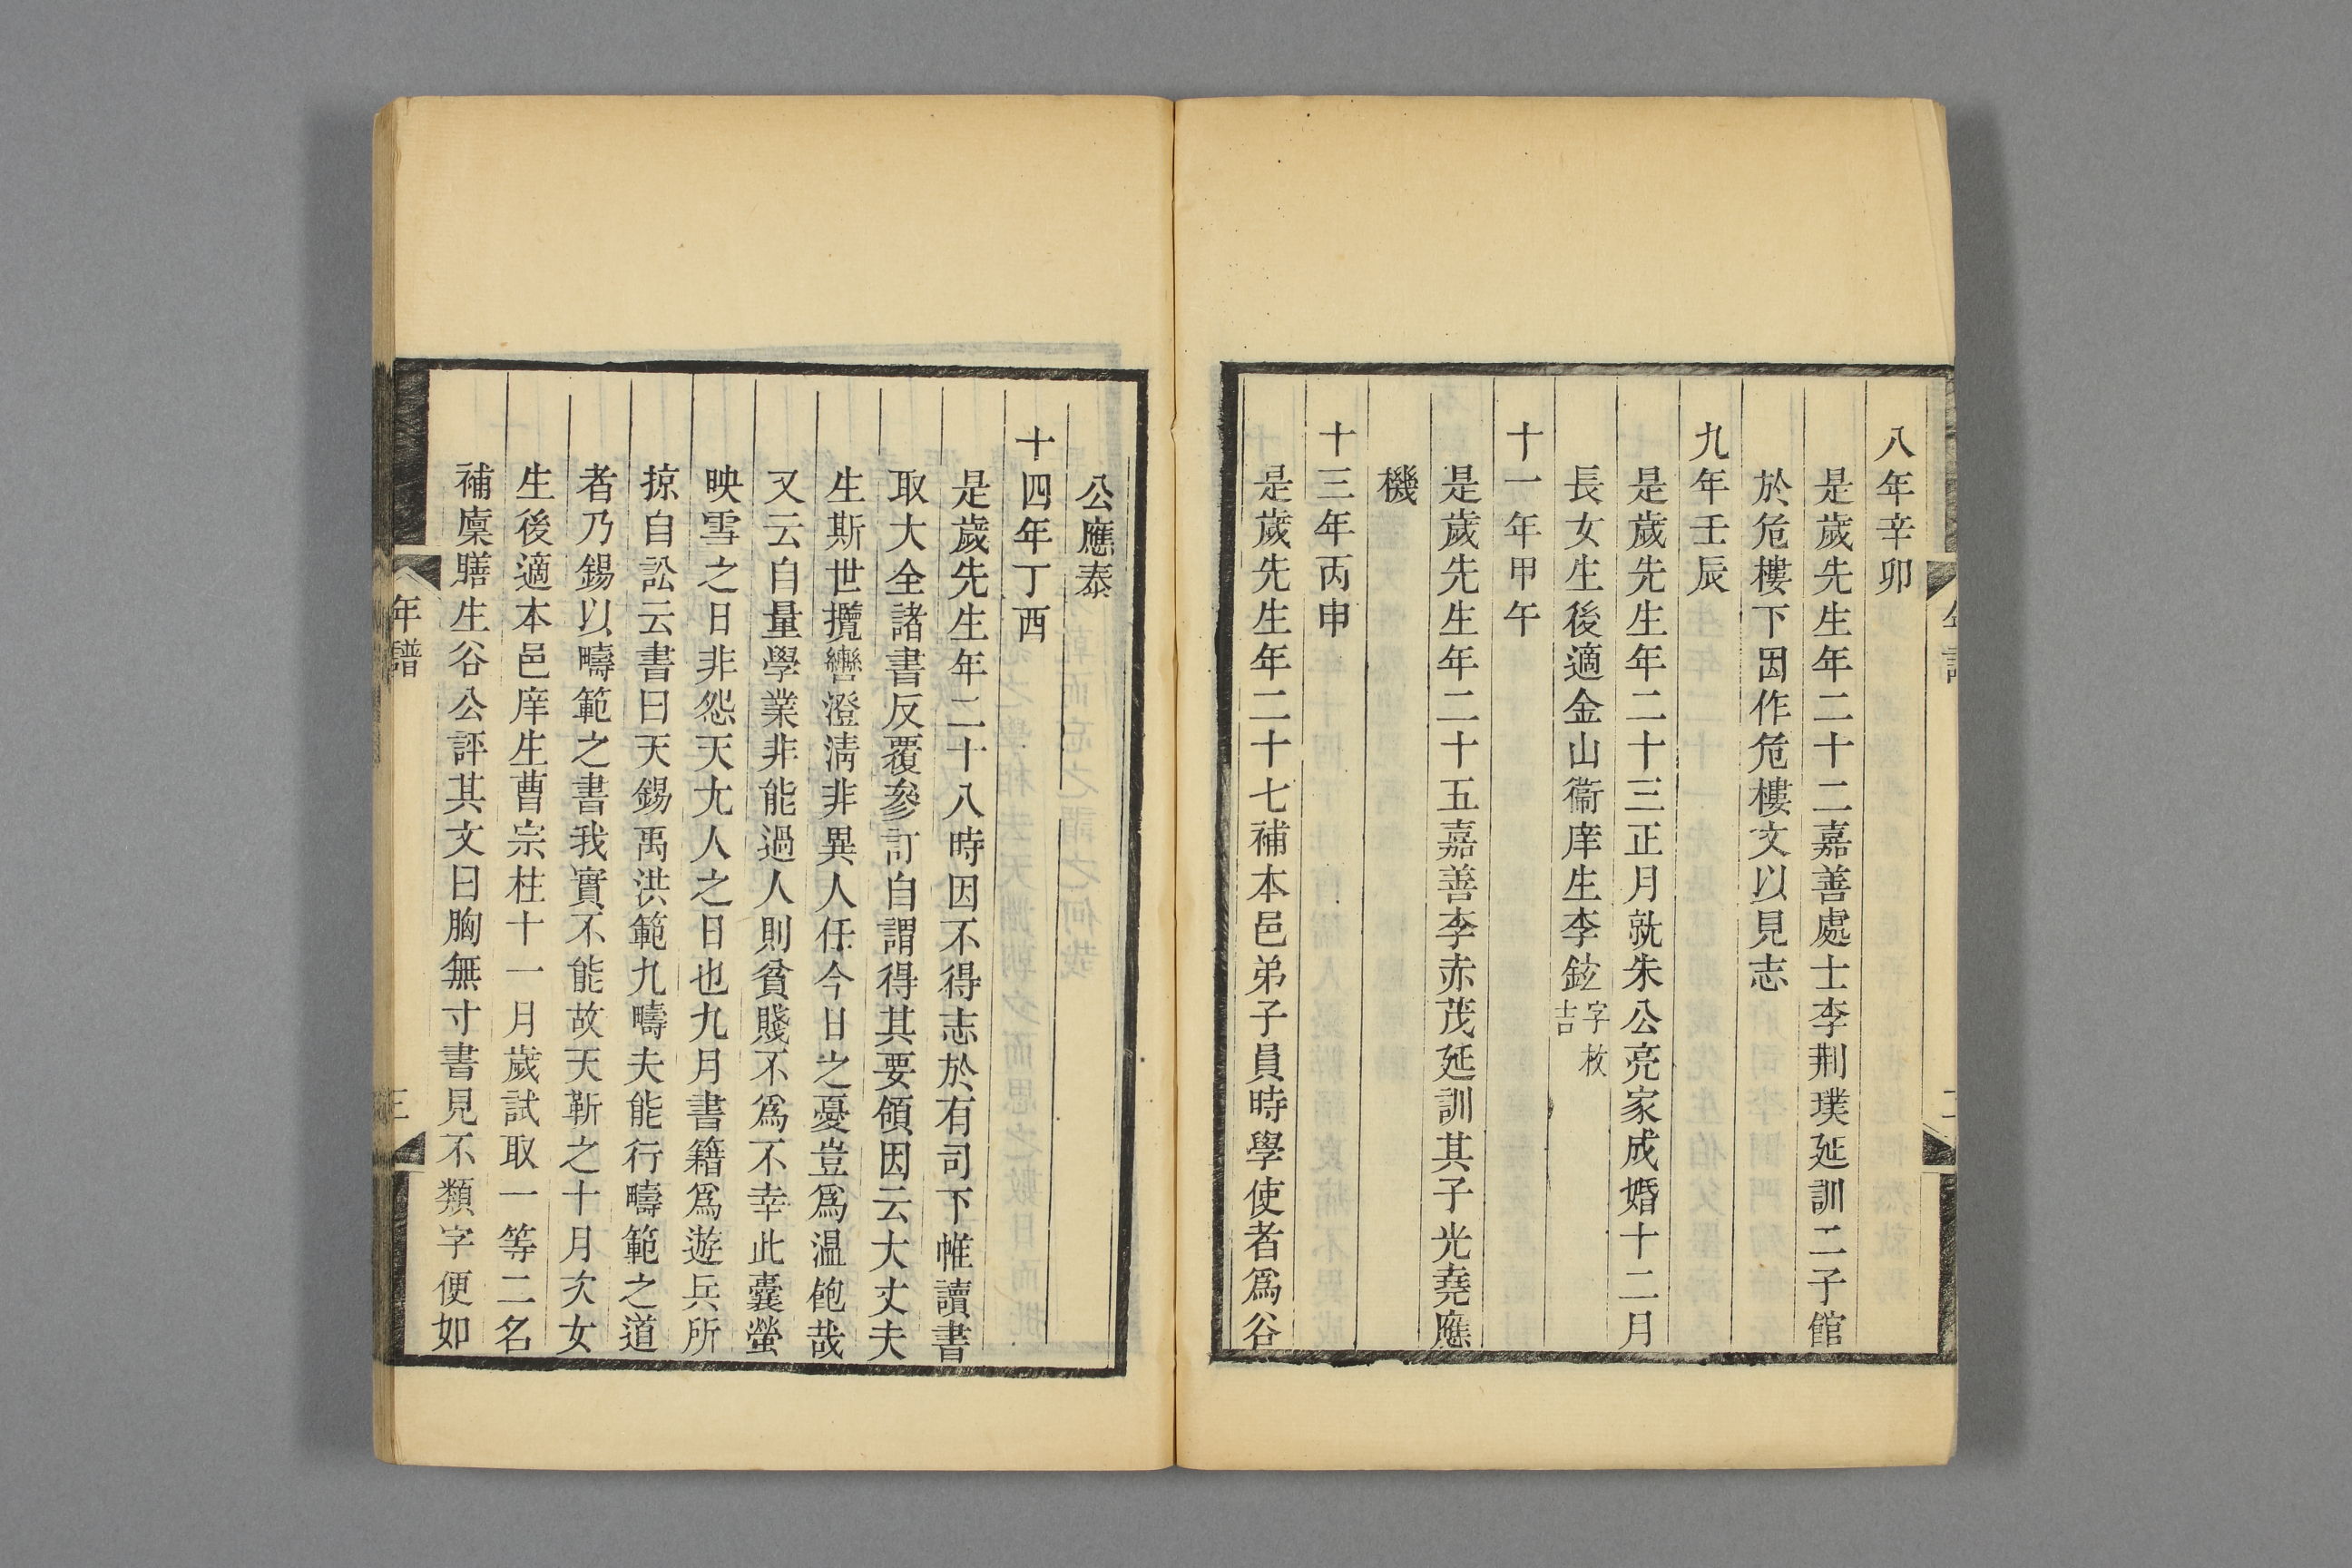 八年辛卯
是歲先生年二十二嘉善處士李荆璞延訓二子館
於危樓下因作危樓文以見志
九年壬辰
是歲先生年二十三正月就朱公亮家成婚十二月
長女生後適金山衞庠生李鉉字枚吉
十一年甲午
是歲先生年二十五嘉善李赤茂延訓其子光堯應
機
十三年丙申
是歲先生年二十七補本邑弟子員時學使者爲谷
公應泰
十四年丁酉
是歲先生年二十八時因不得志於有司下帷讀書
取大全諸書反覆參訂自謂得其要領因云大丈夫
生斯世攬轡澄淸非異人任今日之憂豈爲温飽哉
又云自量學業非能過人則貧賤不爲不幸此囊螢
映雪之日非怨天尤人之日也九月書籍爲遊兵所
掠自訟云書曰天錫禹洪範九疇夫能行疇範之道
者乃錫以疇範之書我實不能故天靳之十月次女
生後適本邑庠生曹宗柱十一月歲試取一等二名
補廩膳生谷公評其文曰胸無寸書見不類字便如
年譜
三